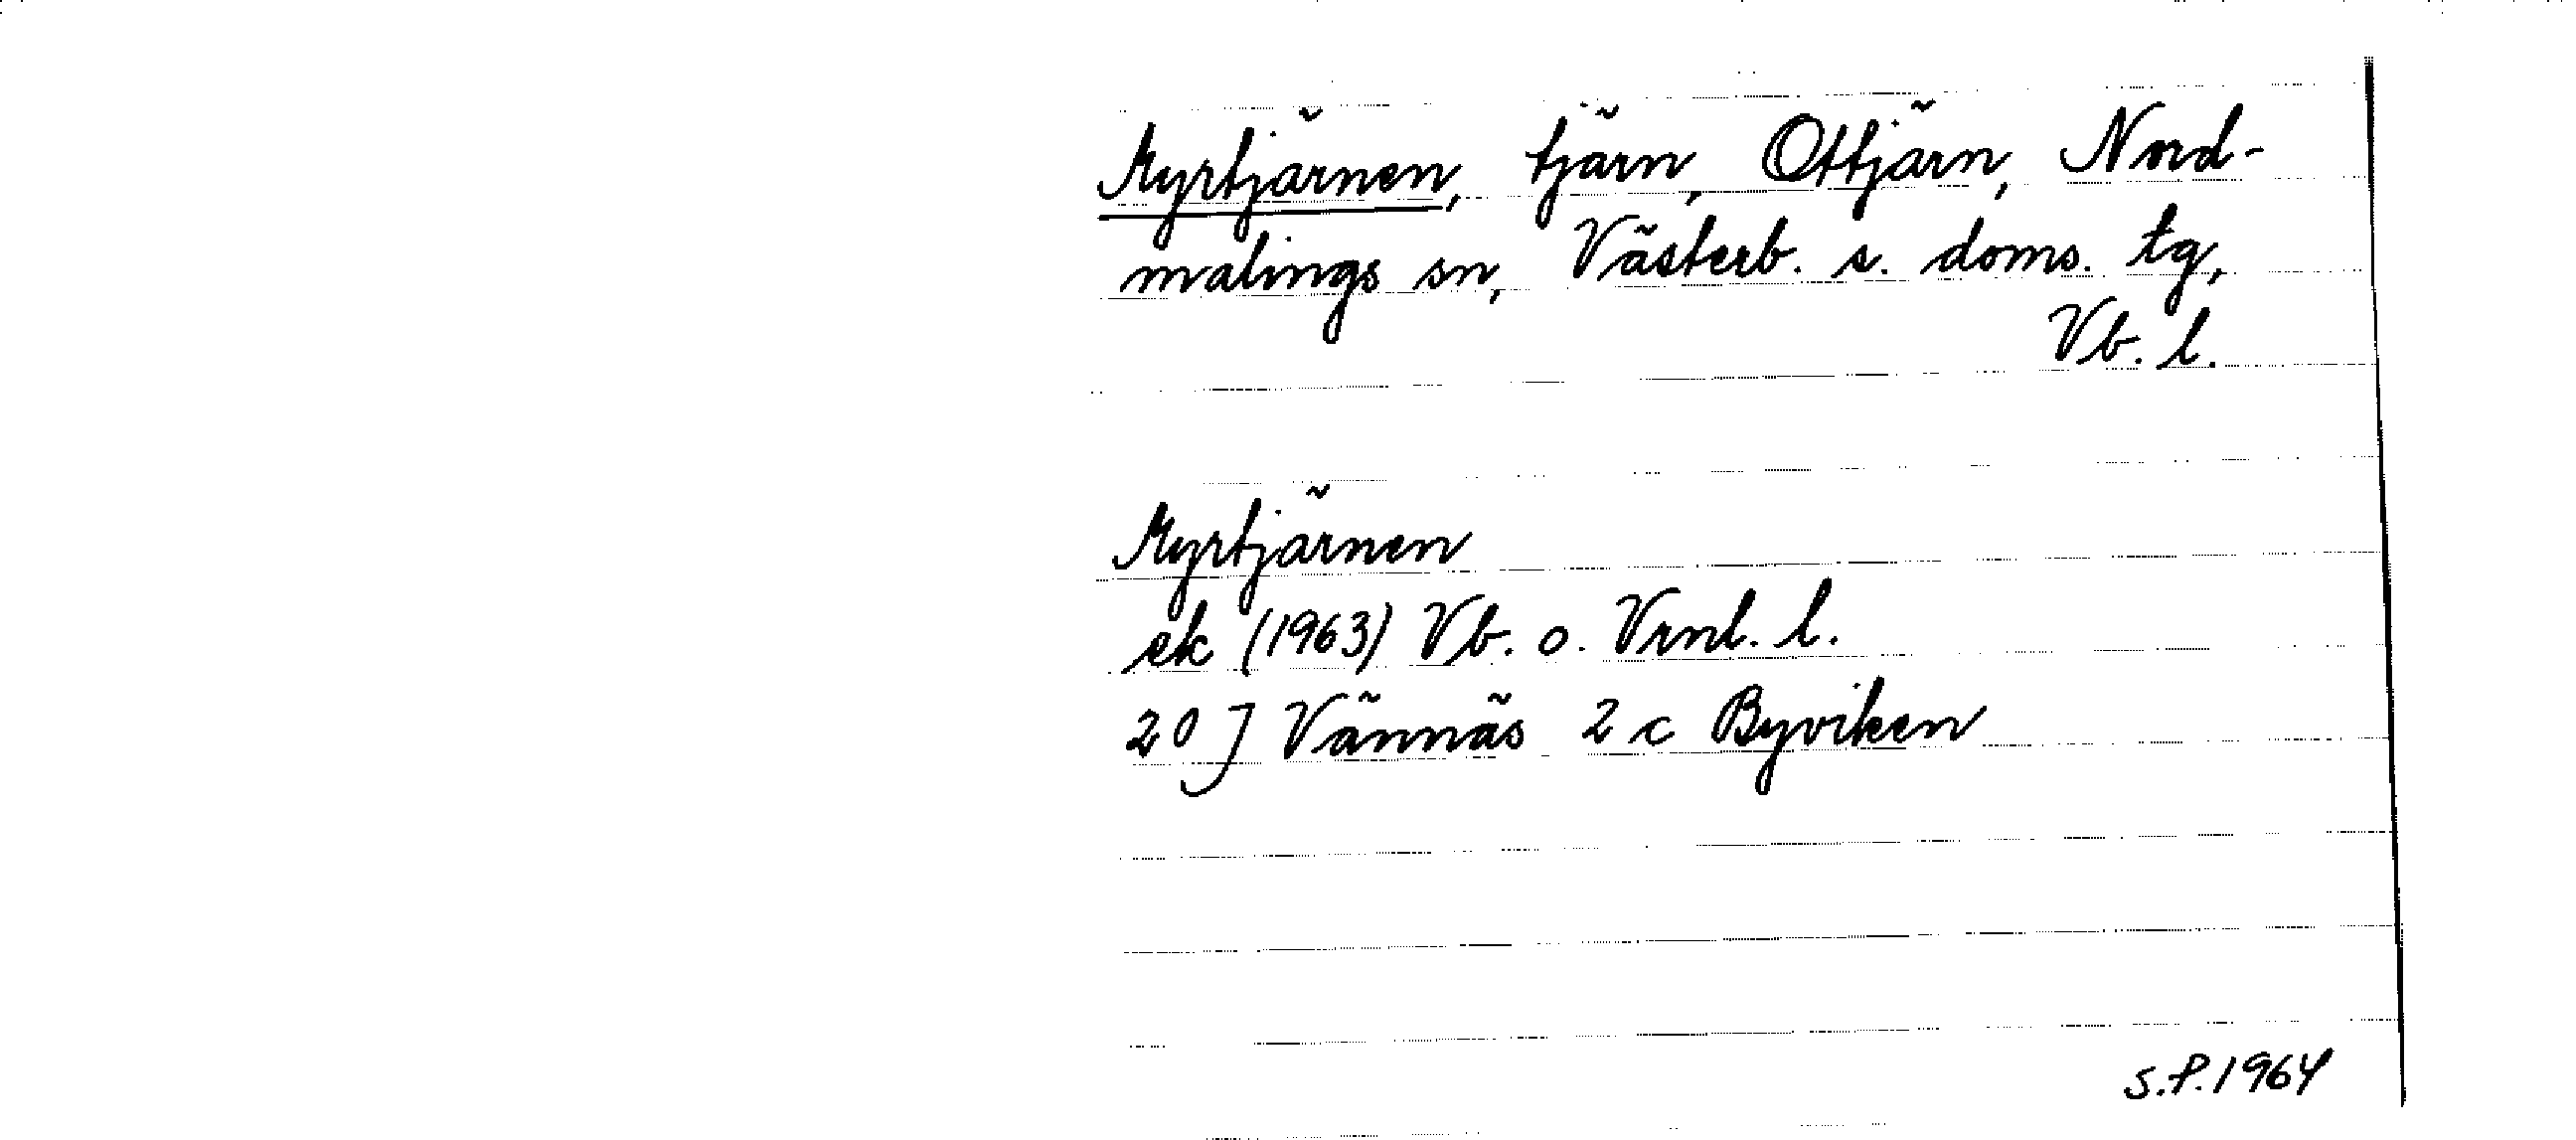 Myrtjärnen, tjärn, Ottjärn, Nord-
malings sn, Västerb. s. doms. tg,
Vb. l.
Myrtjärnen
ek (1963) Vb. o. Vrml. l.
20 J Vännäs 2 c Byviken
S.P. 1964